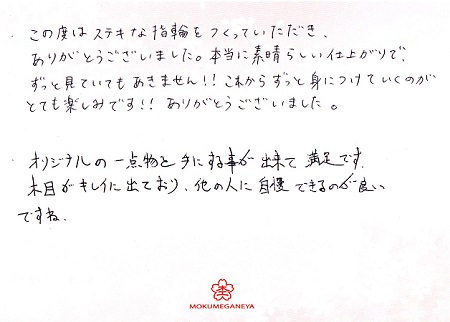 ・この度はステキな指輪をつくっていただき、
ありがとうございました。本当に素晴らしい仕上がりで、
ずっと見ていてもあきません!! これからずっと身につけていくのが
とても楽しみです!! ありがとうございました。
・オリジナルの一点物を手にする事が出来て満足です。
木目がキレイに出ており、他の人に自慢できるのが良い
ですね。
MOKUMEGANEYA